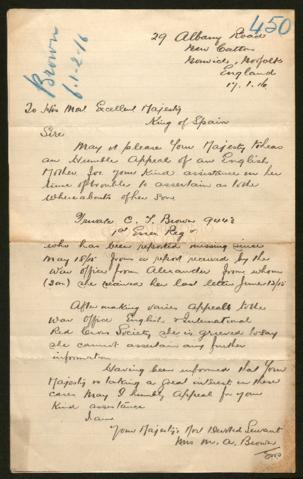 450
Brown
6-1-2-16
29 Albany Road
New Catton
Norwich, Norfolk
England
17.1.16
To His Most Excellent Majesty
King of Spain
Sire
May it please Your Majesty to hear
an Humble Appeal of an English
Mother for your Kind assistance in her
time of trouble to ascertain as to the
whereabouts of her Son
Private C. T. Brown 9448
1st Essex Regt
who has been reported missing since
May 18/15 from a report received by the
War Office from Alexander from whom
(Son) she received her last letter June 13/15
After making various Appeals to the
War Office English & International
Red Cross Society she is grieved to say
she cannot ascertain any further
information
Having been informed that Your
Majesty is taking a great interest in these
cases May I humbly Appeal for your
Kind assistance
I am
Your Majesty's Most Devoted Servant
Mrs M. A. Brown